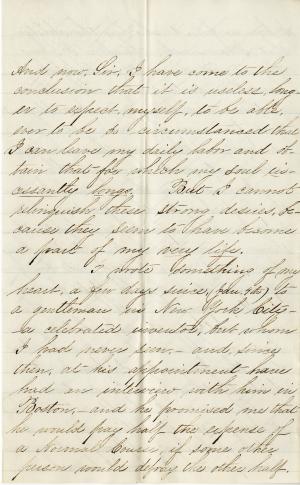 And now, Sir, I have come to the
conclusion that it is useless, long-
er to expect, myself, to be able,
ever to be so circumstanced that
I can leave my daily labor and ob-
tain that for which my soul in-
cessantly longs. But I cannot
relinquish these strong desires, be-
cause they seem to have become
a part of my very life.
I wrote something of my
heart, a few days since, to
a gentleman in New York City—
a celebrated inventor, but whom
I had never seen,— and, since
then, at his appointment have
had an interview with him in
Boston,— and he promised me that
he would pay half the expense of
a Normal Course, if some other
person would defray the other half.